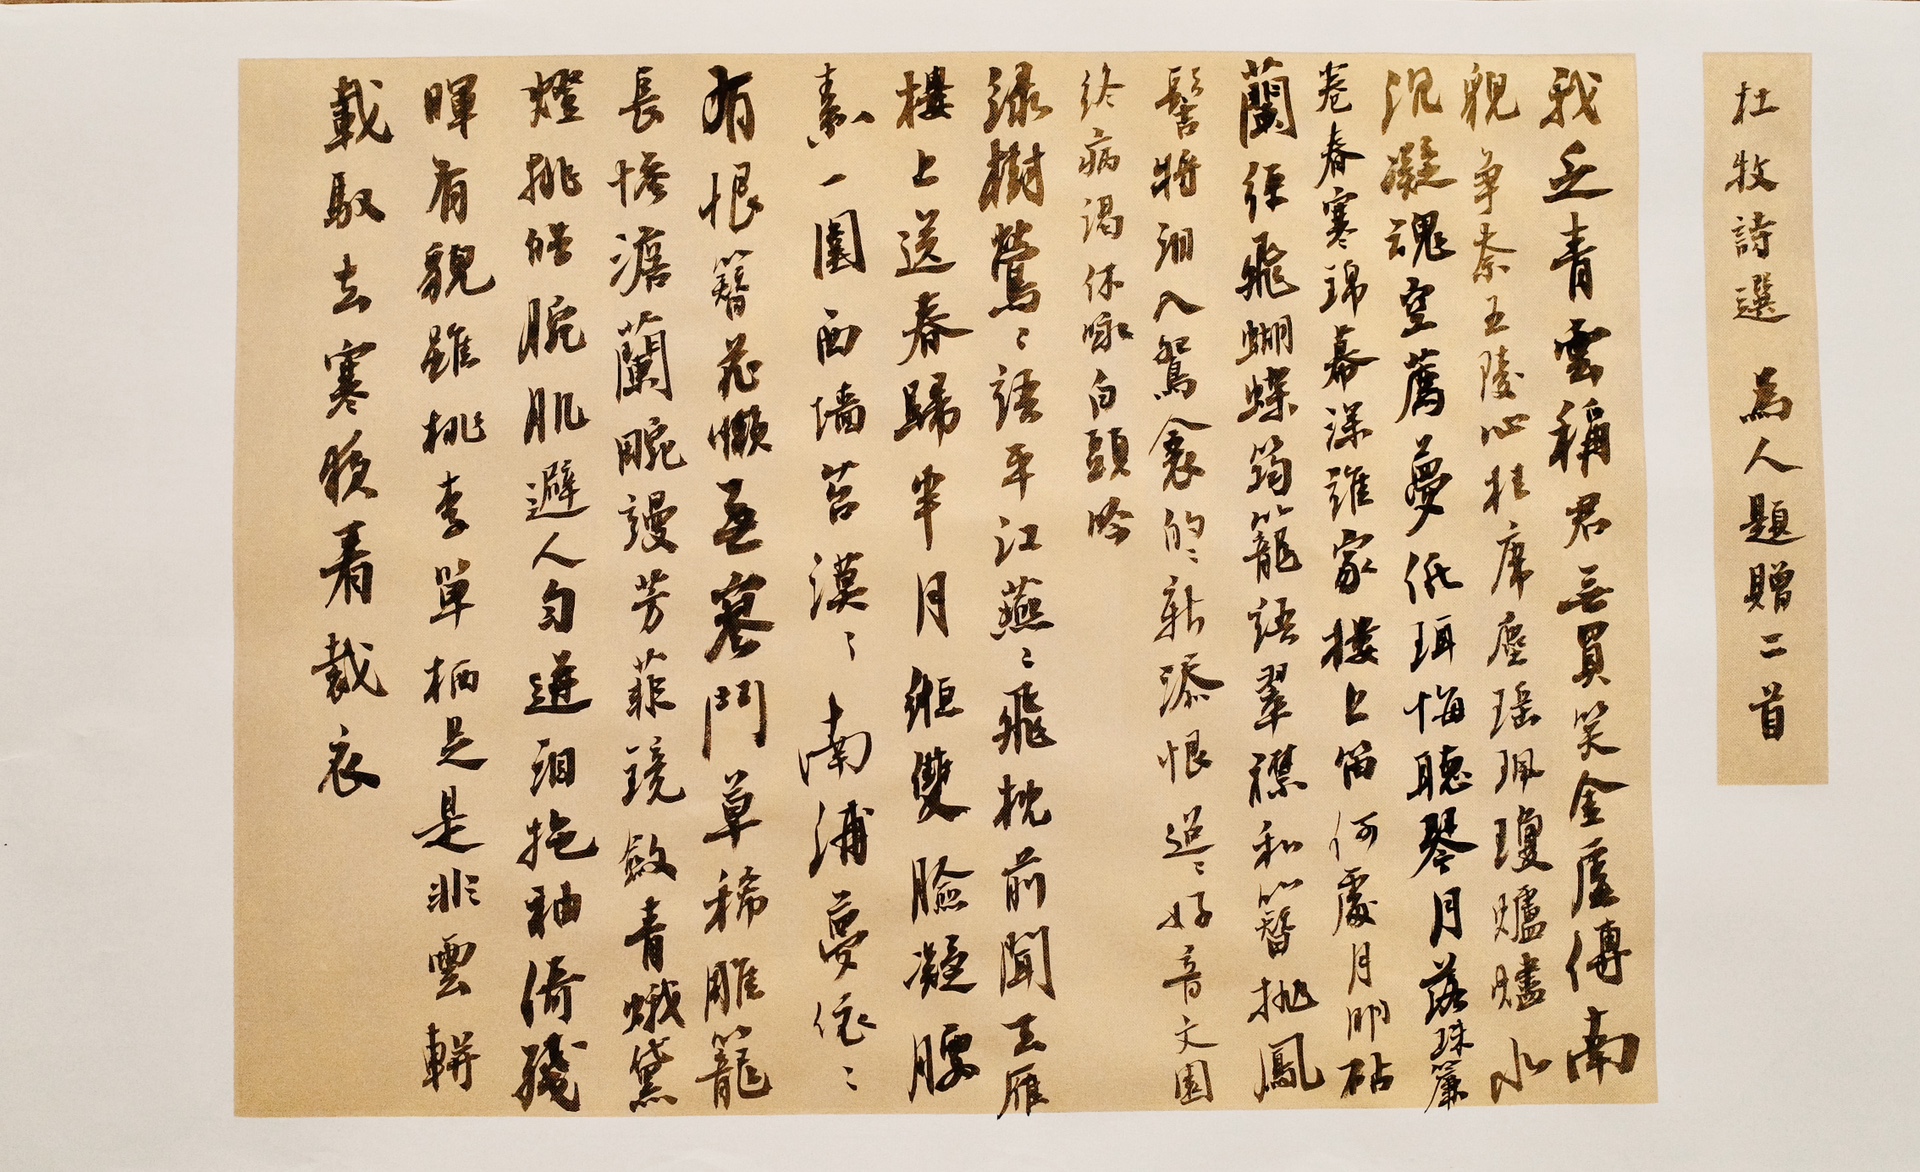 杜牧詩選 為人題贈二首
我乏青雲稱君無買笑金虛傳南
貌爭奈五陵心桂席塵瑤珮瓊爐燼水
沉凝魂空薦夢低珥悔聽琴月落珠簾
卷春寒錦幕深誰家樓上笛何處月明砧
蘭徑飛蝴蝶筠籠語翠襟和簪拋鳳
髻將泪入鴛衾的〻新添恨迢〻好音文園
終病渴休詠白頭吟
綠樹鶯〻語平江燕〻飛枕前聞去雁
樓上送春歸半月縆雙臉凝腰
素一圍西墙苔漠〻南浦夢依〻
有恨簪花懶無寥鬥草稀雕籠
長慘澹蘭畹謾芳菲鏡斂青蛾黛
燈挑皓腕肌避人勻迸泪拖袖倚殘
暉有貌雖桃李單栖足是非雲軿
載馭去寒夜看裁衣